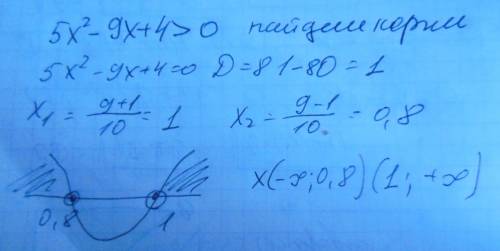 5x²-9x+4>0 найдем корни
5x²-9x+4=0 D=81-80=1
x₁ = (9+1)/10 = 1 x₂ = (9-1)/10 = 0,8
0,8 1
x(-∞;0,8)(1;+∞)